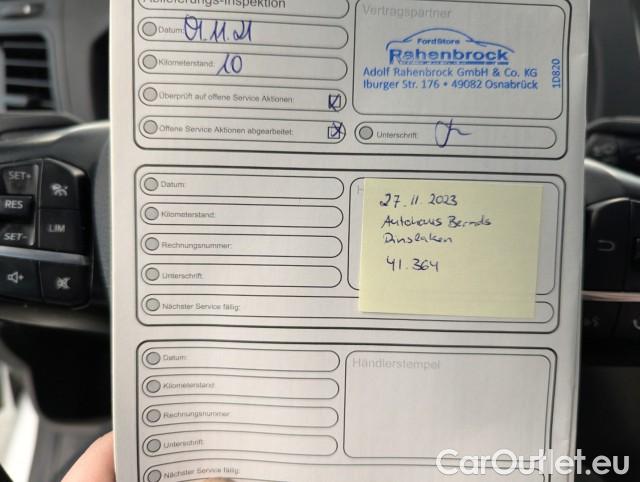 Ablieferungs-Inspektion
Vertragspartner
Datum: 01.11.21
Kilometerstand: 10
FordStore
Rahenbrock
Adolf Rahenbrock GmbH & Co. KG
Iburger Str. 176 • 49082 Osnabrück
1D820
Überprüft auf offene Service Aktionen:
Offene Service Aktionen abgearbeitet:
Unterschrift:
Datum:
Kilometerstand:
Rechnungsnummer:
Unterschrift:
Nächster Service fällig:
H
27.11.2023
Autohaus Bernds
Dinslaken
41.364
Datum:
Kilometerstand:
Rechnungsnummer:
Unterschrift:
Nächster Service fällig:
Händlerstempel
SET+
RES
SET-
LIM
CarOutlet.eu